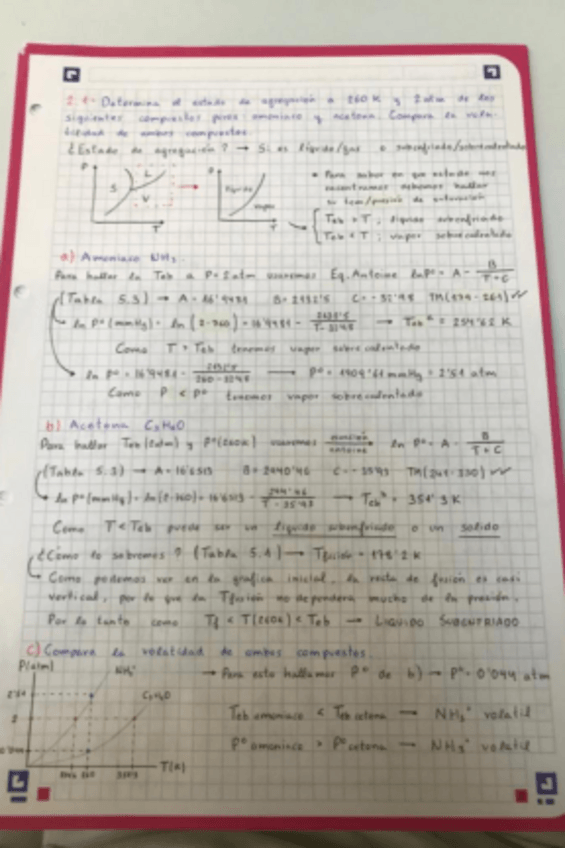 2.4- Determina el estado de agregación a 260 K y 2 atm de los
siguientes compuestos puros: amoniaco y acetona. Compara la vola-
tilidad de ambos compuestos.
¿Estado de agregación? → Si es líquido/gas o subenfriado/sobrecalentado
P
S
L
V
T
P
líquido
vapor
T
• Para saber en que estado nos
encontramos debemos hallar
su tem/presión de saturación
Teb > T; líquido subenfriado
Teb < T; vapor sobrecalentado
a) Amoniaco NH₃.
Para hallar la Teb a P=2atm usaremos Eq. Antoine ln Pº = A - B / (T + C)
(Tabla 5.3) → A = 16'9481 B = 2132'5 C = -32'98 TM(179-261) ✓✓
ln Pº (mmHg) = ln (2·760) = 16'9481 - 2132'5 / (T - 32'98) → Teb = 254'62 K
Como T > Teb tenemos vapor sobrecalentado
ln Pº = 16'9481 - 2132'5 / (260 - 32'98) → Pº = 1909'61 mmHg = 2'51 atm
Como P < Pº tenemos vapor sobrecalentado
b) Acetona C₃H₆O
Para hallar Teb (2atm) y Pº (260K) usaremos ln Pº = A - B / (T + C)
(Tabla 5.3) → A = 16'6513 B = 2940'46 C = -35'93 TM(241-350) ✓✓
ln Pº (mmHg) = ln (2·760) = 16'6513 - 2940'46 / (T - 35'93) → Teb = 351'3 K
Como T < Teb puede ser un líquido subenfriado o un sólido
¿Cómo lo sabremos? (Tabla 5.1) → Tfusión = 178'2 K
Como podemos ver en la gráfica inicial, la recta de fusión es casi
vertical, por lo que la Tfusión no dependerá mucho de la presión.
Por lo tanto como Tf < T(260K) < Teb → LIQUIDO SUBENFRIADO
c) Compara la volatidad de ambos compuestos.
P(atm)
NH₃
C₃H₆O
2'51
2
0'044
T(K)
→ Para esto hallamos Pº de b) → Pº = 0'044 atm
Teb amoniaco < Teb acetona → NH₃⁺ volatil
Pº amoniaco > Pº acetona → NH₃⁺ volatil